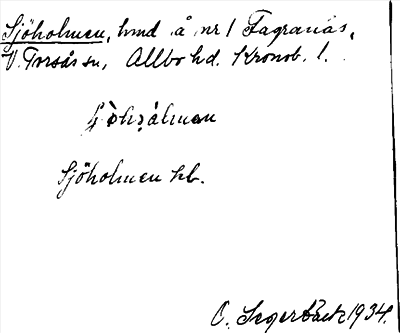 Sjöholmen, hmd å nr 1 Fagranäs,
V. Torsås sn, Allbo hd. Kronob. l.
Sjöholmen hb.
O. Segerbäck 1934.